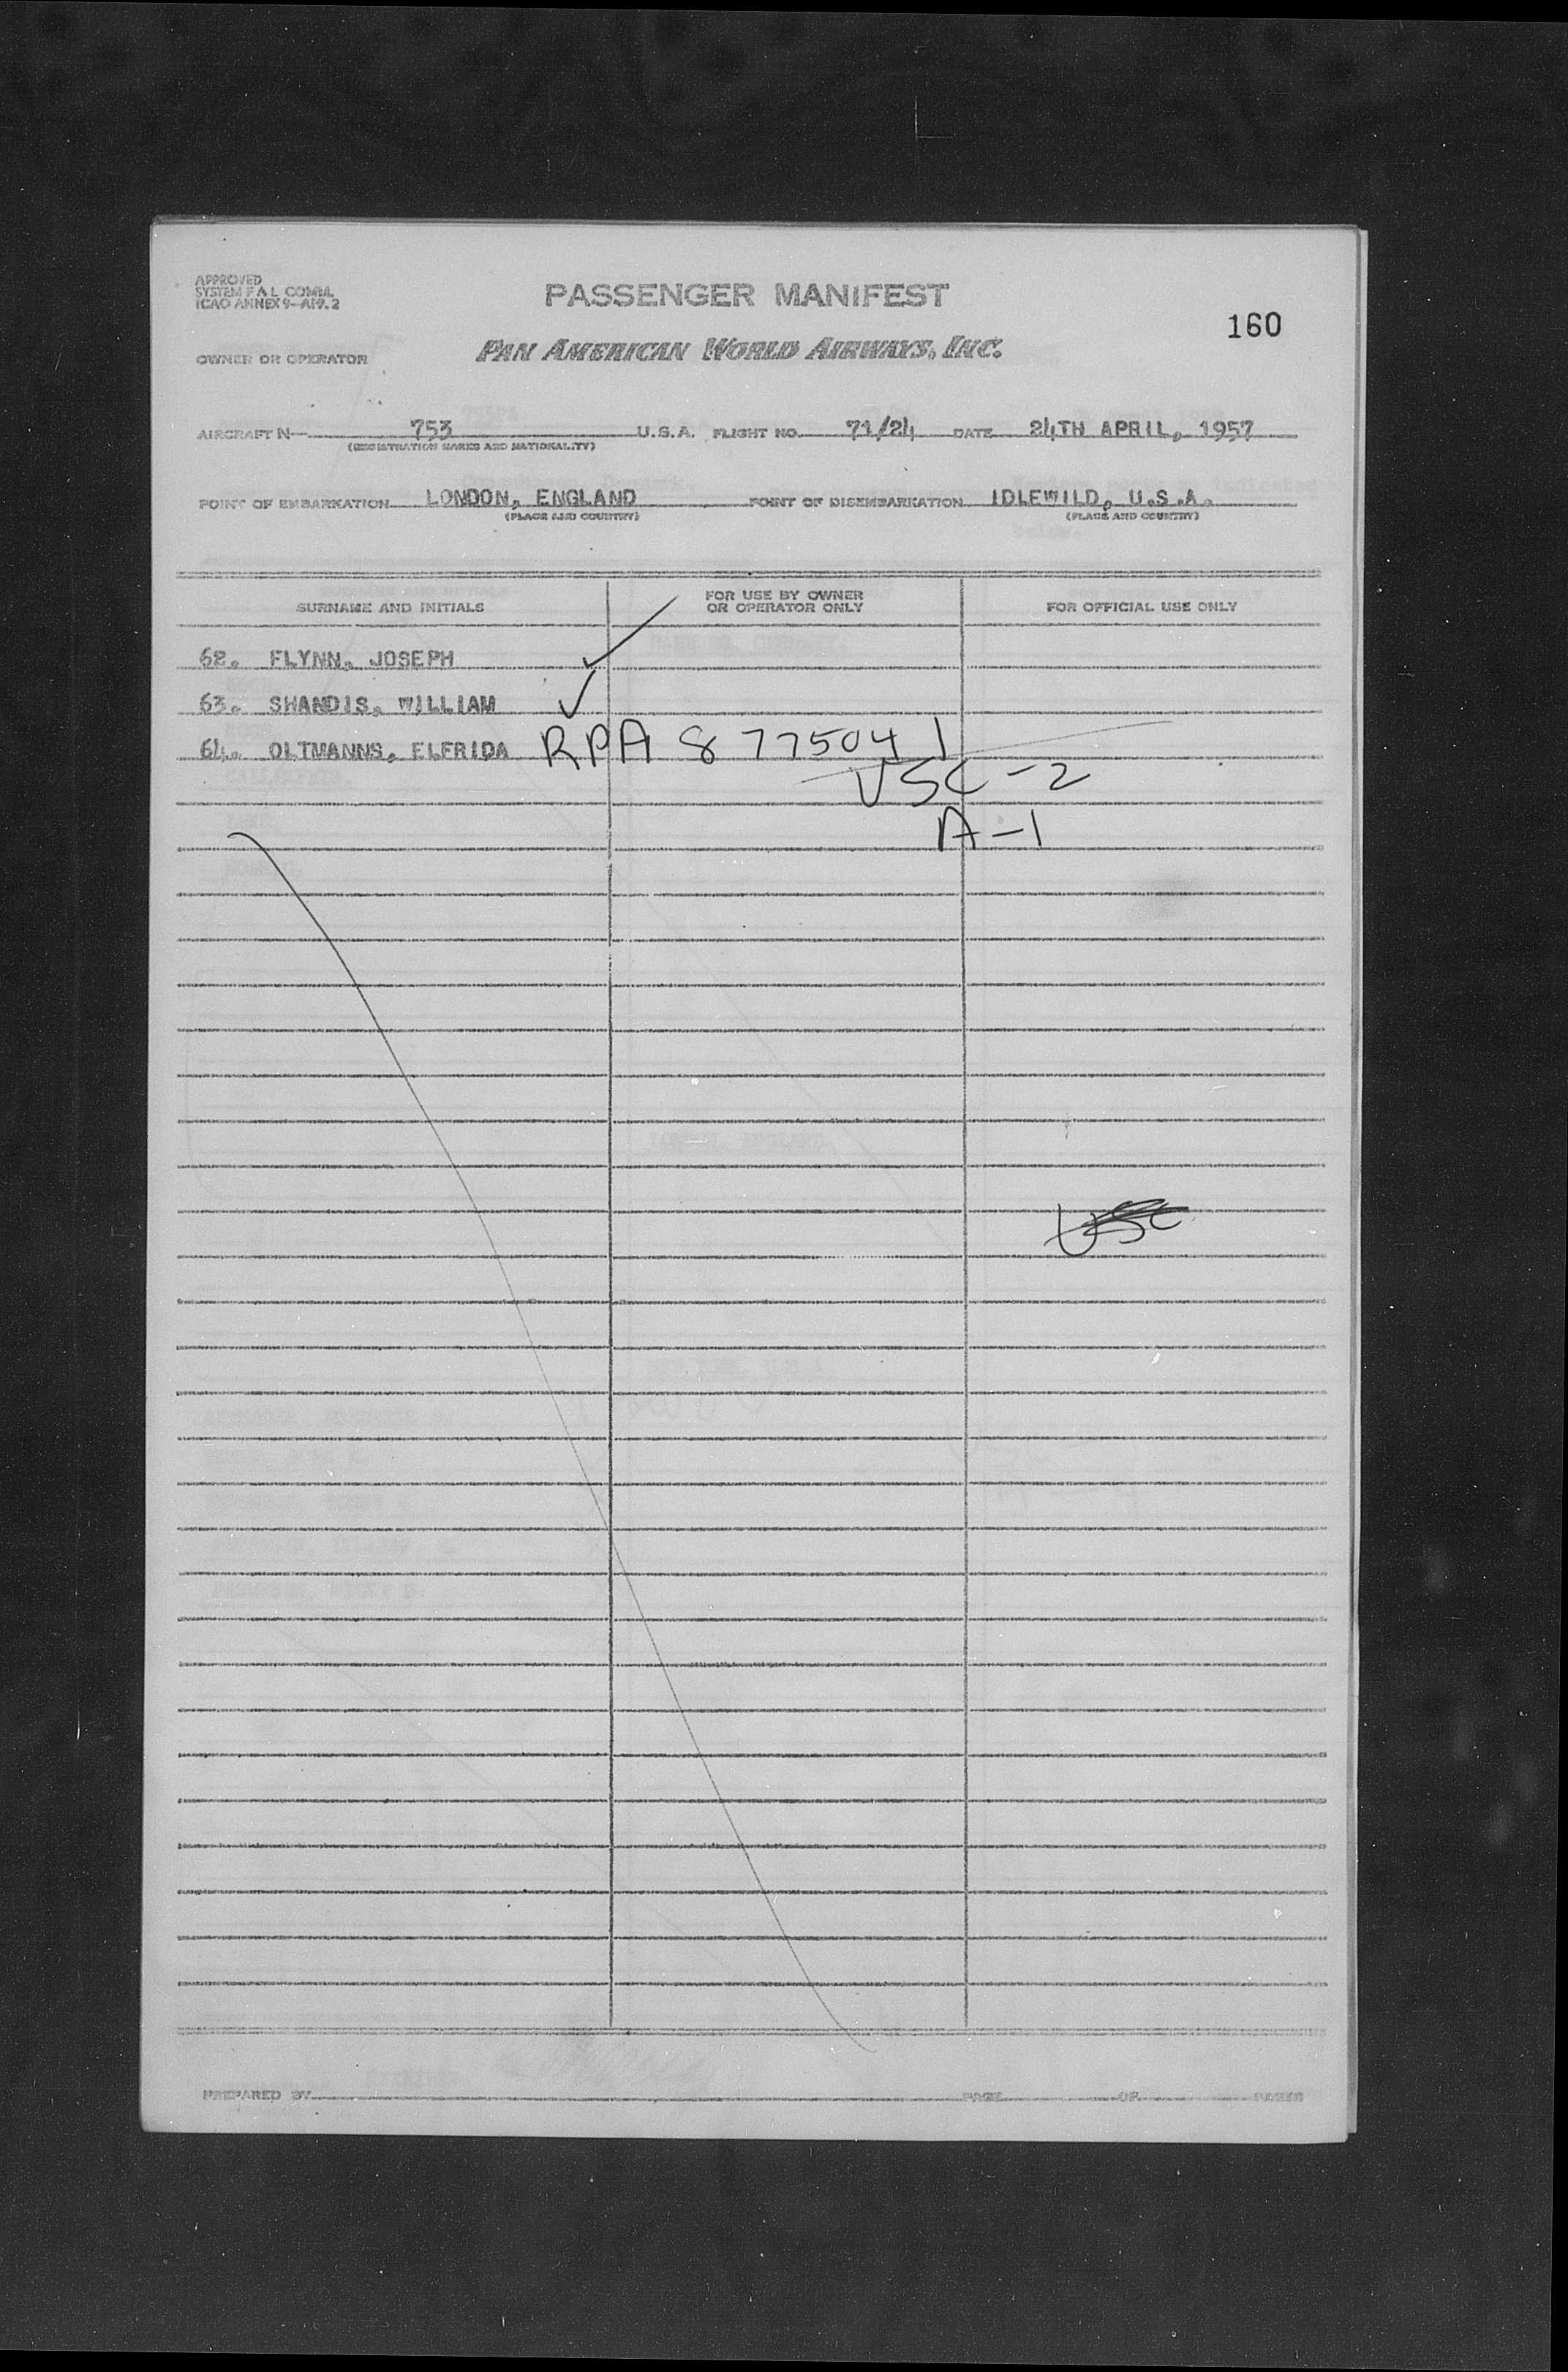 APPROVED
SYSTEM F A L COMM.
ICAO ANNEX 9—AP9.2
PASSENGER MANIFEST
160
OWNER OR OPERATOR PAN AMERICAN WORLD AIRWAYS, INC.
AIRCRAFT N— 753 U.S.A. FLIGHT NO. 71/24 DATE 24TH APRIL, 1957
(REGISTRATION MARKS AND NATIONALITY)
POINT OF EMBARKATION LONDON, ENGLAND POINT OF DISEMBARKATION IDLEWILD, U.S.A.
(PLACE AND COUNTRY) (PLACE AND COUNTRY)
SURNAME AND INITIALS FOR USE BY OWNER OR OPERATOR ONLY FOR OFFICIAL USE ONLY
62. FLYNN, JOSEPH ✓
63. SHANDIS, WILLIAM ✓
64. OLTMANNS, ELFRIDA RPA 8 775041
USC-2
A-1
USC
PREPARED BY PAGE OF PAGES